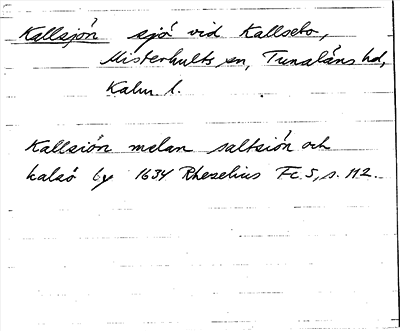 Kallsjön sjö vid Kallsebo,
Misterhults sn, Tunaläns hd,
Kalm. l.
Kallsiön melan saltsiön och
kalsö by 1634 Rhezelius Fc. 5, s. 112.